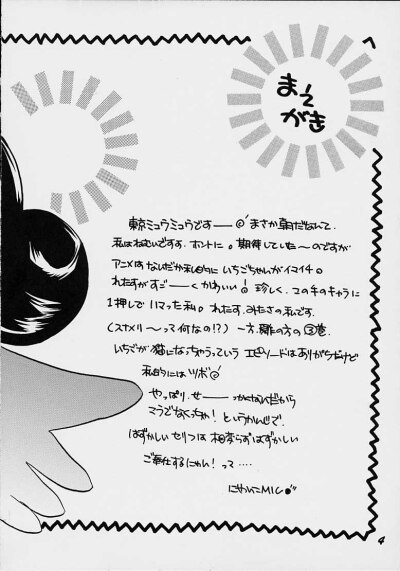 まえがき
東京ミュウミュウです—— まさか朝だなんて。
私はねむいですす。ホントに。期待していた〜のですが
アニメはなんだか私的にいちごちゃんがイマイチ。
れたすがすご——くかわいい! 珍しく、この手のキャラに
1押しでハマった私。れたす、みたさの私です。
一方、雛の方の③巻、
いちごが猫になっちゃうっていう エピソードはありがちだけど
私的にはツボ
やっぱり、せ——っかくなんだから
こうでなくっちゃ! というかんじで、
はずかしい セリフは相変らずはずかしい
ご奉仕するにゃん! って……
にゃいこMIC
4